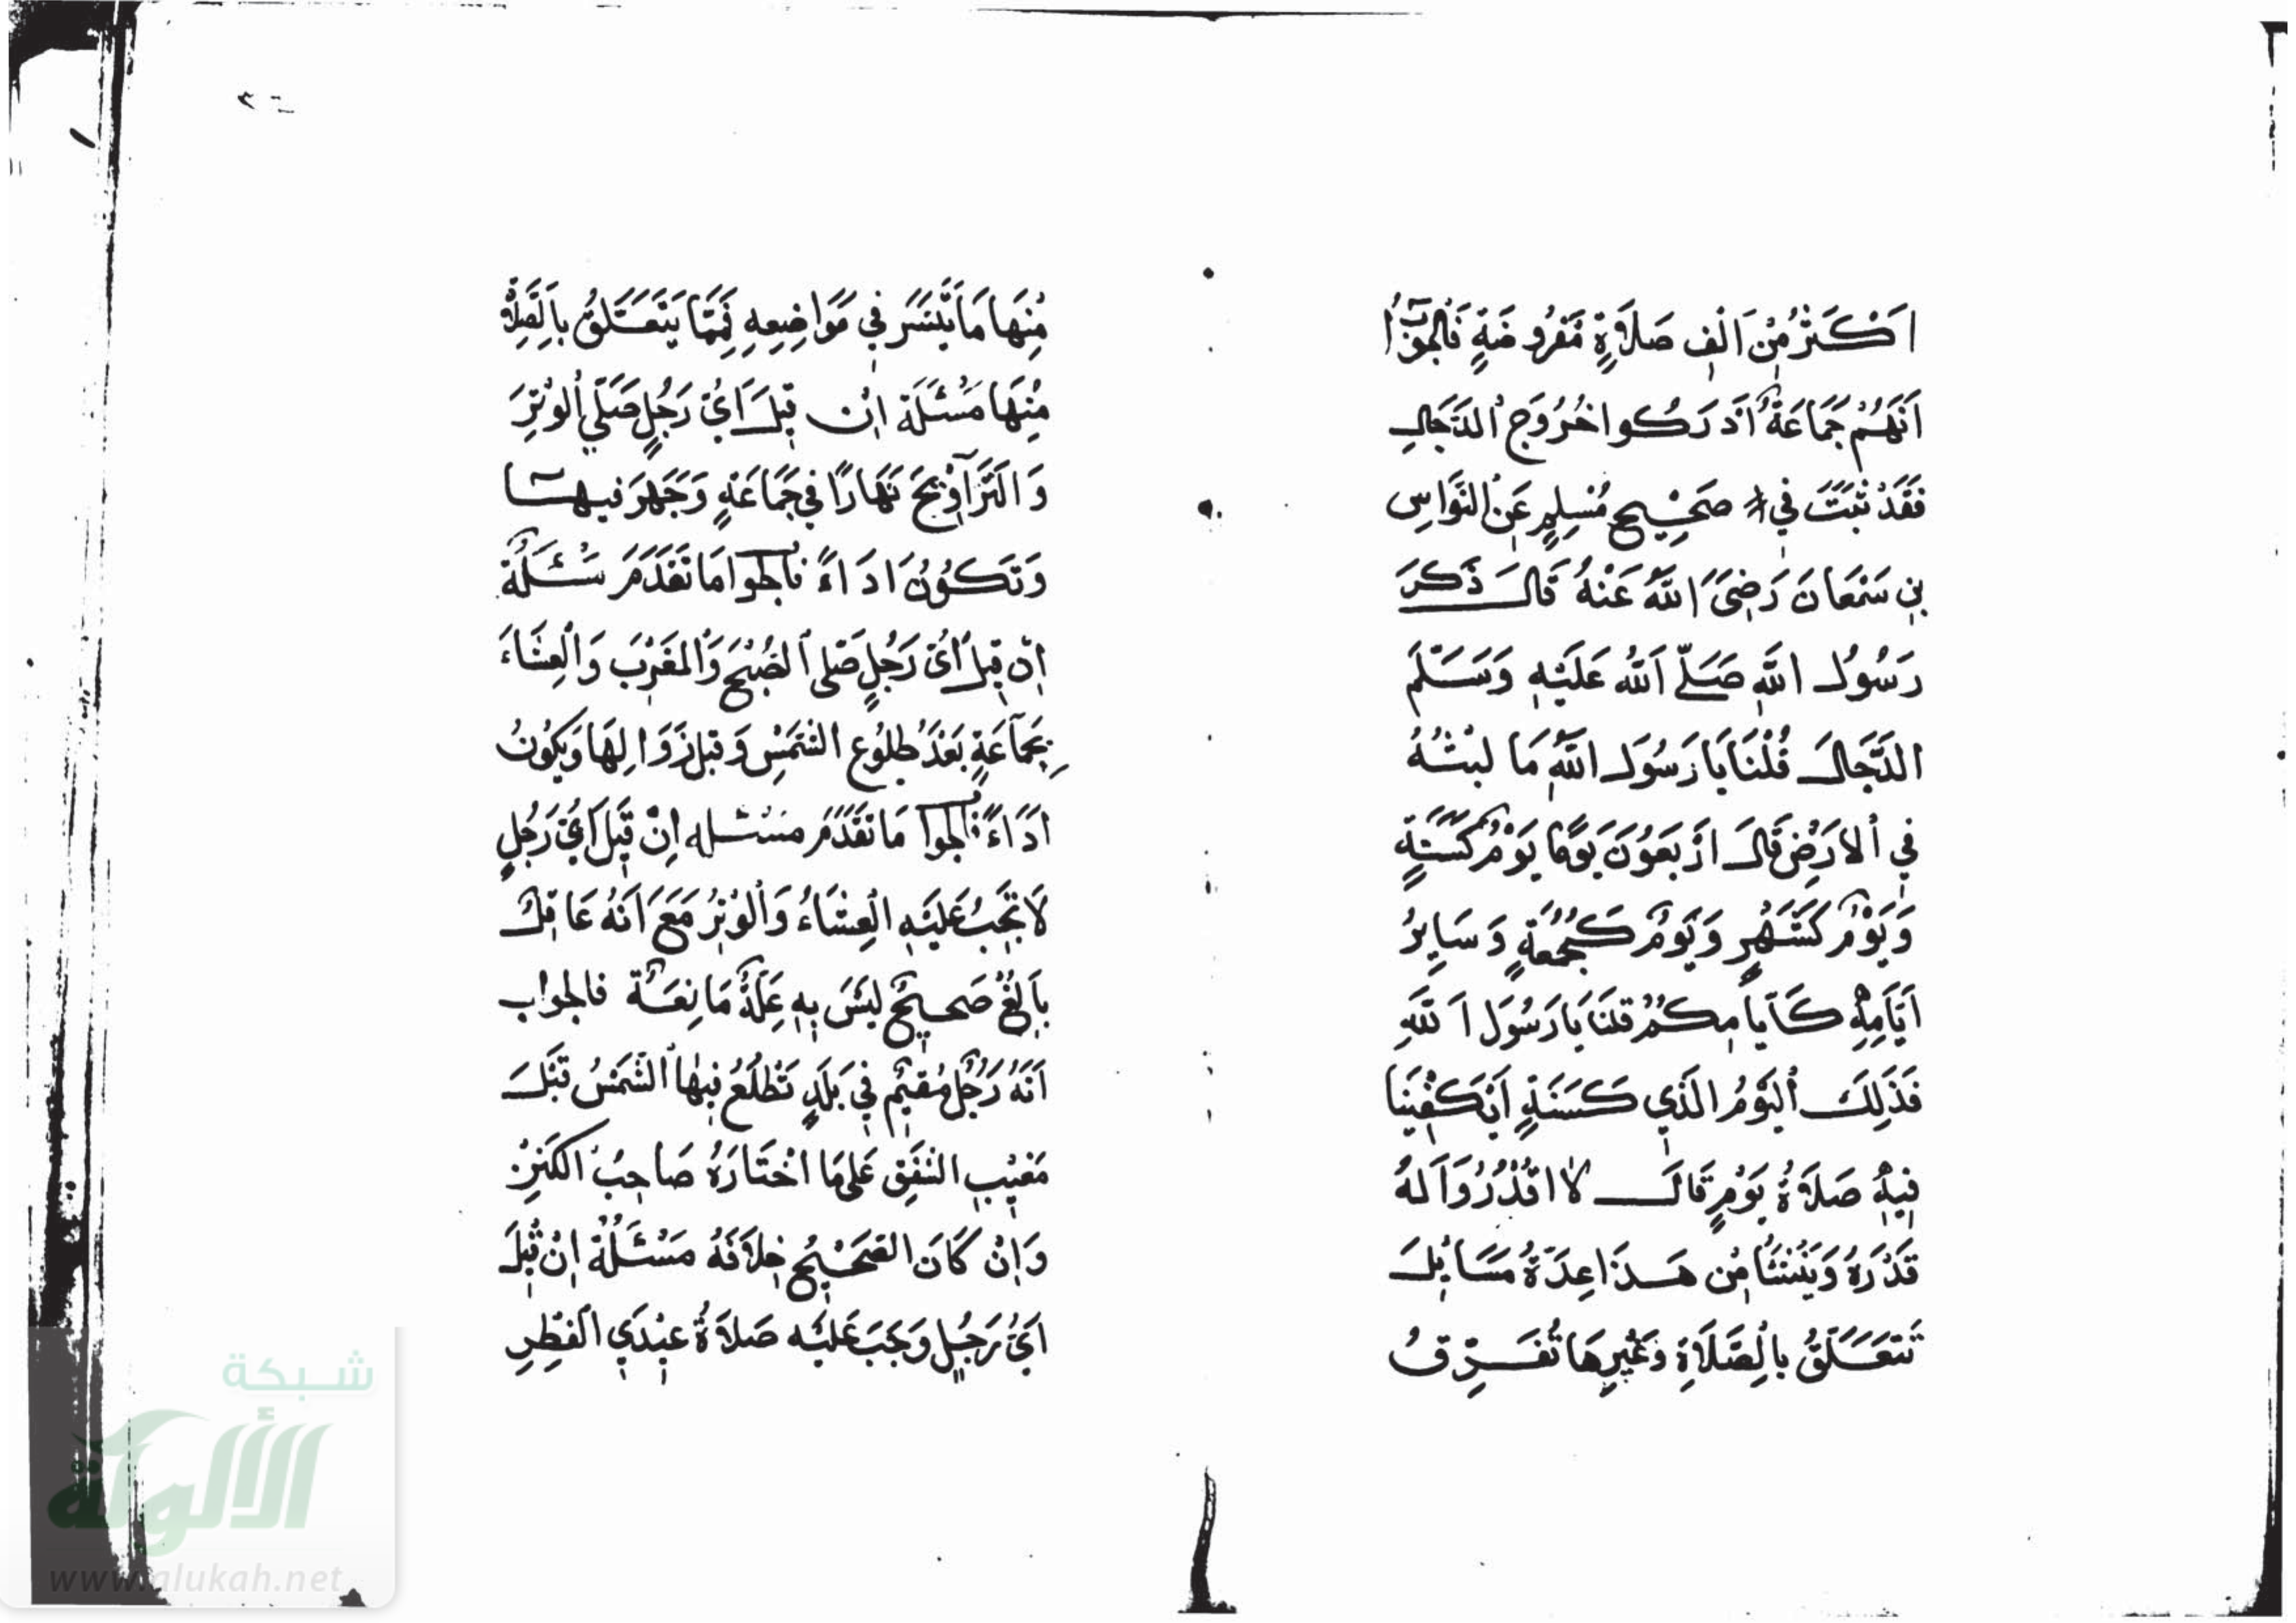 اَكْثَرُ مِنْ اَلْفِ صَلَاةٍ مَفْرُوضَةٍ فَالجَوَابُ
اَنَّهُمْ جَمَاعَةٌ اَدْرَكُوا خُرُوجَ الدَّجَالِ
فَقَدْ ثَبَتَ فِي صَحِيْحِ مُسْلِمٍ عَنْ النَّوَاسِ
بنِ سَمْعَانَ رَضِيَ اللَّهُ عَنْهُ قَالَ ذَكَرَ
رَسُولُ اللَّهِ صَلَّى اَللَّهُ عَلَيْهِ وَسَلَّمَ
الدَّجَالَ قُلْنَا يَا رَسُولَ اللَّهِ مَا لبْثُهُ
فِي اْلاَرْضِ قَالَ اَرْبَعُونَ يَومًا يَوْمٌ كَسَنَةٍ
وَيَوْمٌ كَشَهْرٍ وَيَومٌ كَجُمُعَةٍ وَسَايِرُ
اَيَّامِهِ كَاَيَّامِكُمْ قلْنَا يَا رَسُولَ اَللَّهِ
فَذَلِكَ اْليَوْمُ الَّذِي كَسَنَةٍ اَيَكْفِيْنَا
فِيهِ صَلَاةُ يَوْمٍ قَالَ لَا اقْدُرُوَا لَهُ
قَدْرَهُ وَيَنْشَأُ مِن هَذَا عِدَّةُ مَسَايِلَ
تَتَعَلَّقُ بِالصَّلَاةِ وَغَيْرِهَا تُفَرِّقُ
مِنْهَا مَا تَيَسَّرَ فِي مَوَاضِعِهِ فَمِمَّا يَتَعَلَّقُ بِالصَّلَاةِ
مِنْهَا مَسْئَلَة اِنْ قِيلَ اَيُّ رَجُلٍ صَلَّى الْوِتْرَ
وَالتَّرَاوِيْحَ نَهَارًا فِي جَمَاعَةٍ وَجَهَرَ فيهمَا
وَتَكُونُ اَدَاءً فالجوا مَا تَقَدَّمَ مَسْئَلَةٌ
اِن قِيلَ اَيُّ رَجُلٍ صَلى الصُبْحَ وَالمَغْرِبَ وَالْعِشَاءَ
بِجَمَاعَةٍ بَعْدَ طلُوعِ الشَّمْسِ وَقبْلَ زَوَالِهَا وَيَكُونُ
اَدَاءً فالجوا مَا تَقَدَّمَ مَسْئله اِنْ قِيلَ اَيُّ رَجُلٍ
لَا تَجِبُ عَلَيْهِ الْعِشَاءُ وَالْوِتْرُ مَعَ اَنَّهُ عَاقِلٌ
بَالِغٌ صَحِيحٌ ليْسَ بِهِ عِلَّةٌ مَانِعَةٌ فالجواب
اَنَّهُ رَجُلٌ مُقيْمٌ فِي بَلَدٍ تَطْلُعُ فِيهَا الشَّمْسُ قَبْلَ
مَغِيْبِ الشَّفَقِ عَلى مَا اخْتَارَهُ صَاحِبُ الكَنْزِ
وَاِنْ كَانَ الصَّحِيْحُ خِلَافَهُ مَسْئَلَةٌ اِنْ قِيْلَ
اَيُّ رَجُلٍ وَجَبَ عَلَيْهِ صَلَاةُ عِيْدَيِ الْفِطْرِ
شبكة
الألوكة
www.alukah.net